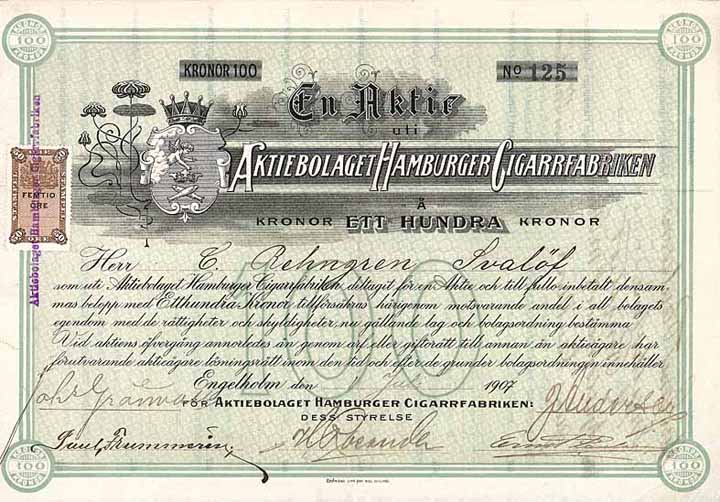 KRONOR 100
No 125
En Aktie
uti
AKTIEBOLAGET HAMBURGER CIGARRFABRIKEN
Å
KRONOR ETT HUNDRA KRONOR
FEMTIO
ÖRE
50 50
Aktiebolaget Hamburger Cigarrfabriken
Herr C. Rehngren Svalöf
som uti Aktiebolaget Hamburger Cigarrfabriken deltagit för en Aktie och till fullo inbetalt densam-
mas belopp med Etthundra Kronor tillförsäkras härigenom motsvarande andel i all bolagets
egendom med de rättigheter och skyldigheter nu gällande lag och bolagsordning bestämma
Vid aktiens öfvergång annorledes än genom arf eller giftorätt till annan än aktieägare har
förutvarande aktieägare lösningsrätt inom den tid och efter de grunder bolagsordningen innehåller
100
Engelholm den 1907
FÖR AKTIEBOLAGET HAMBURGER CIGARRFABRIKEN:
DESS STYRELSE
KRONOR 100 KRONOR
KRONOR 100 KRONOR
KRONOR 100 KRONOR
KRONOR 100 KRONOR